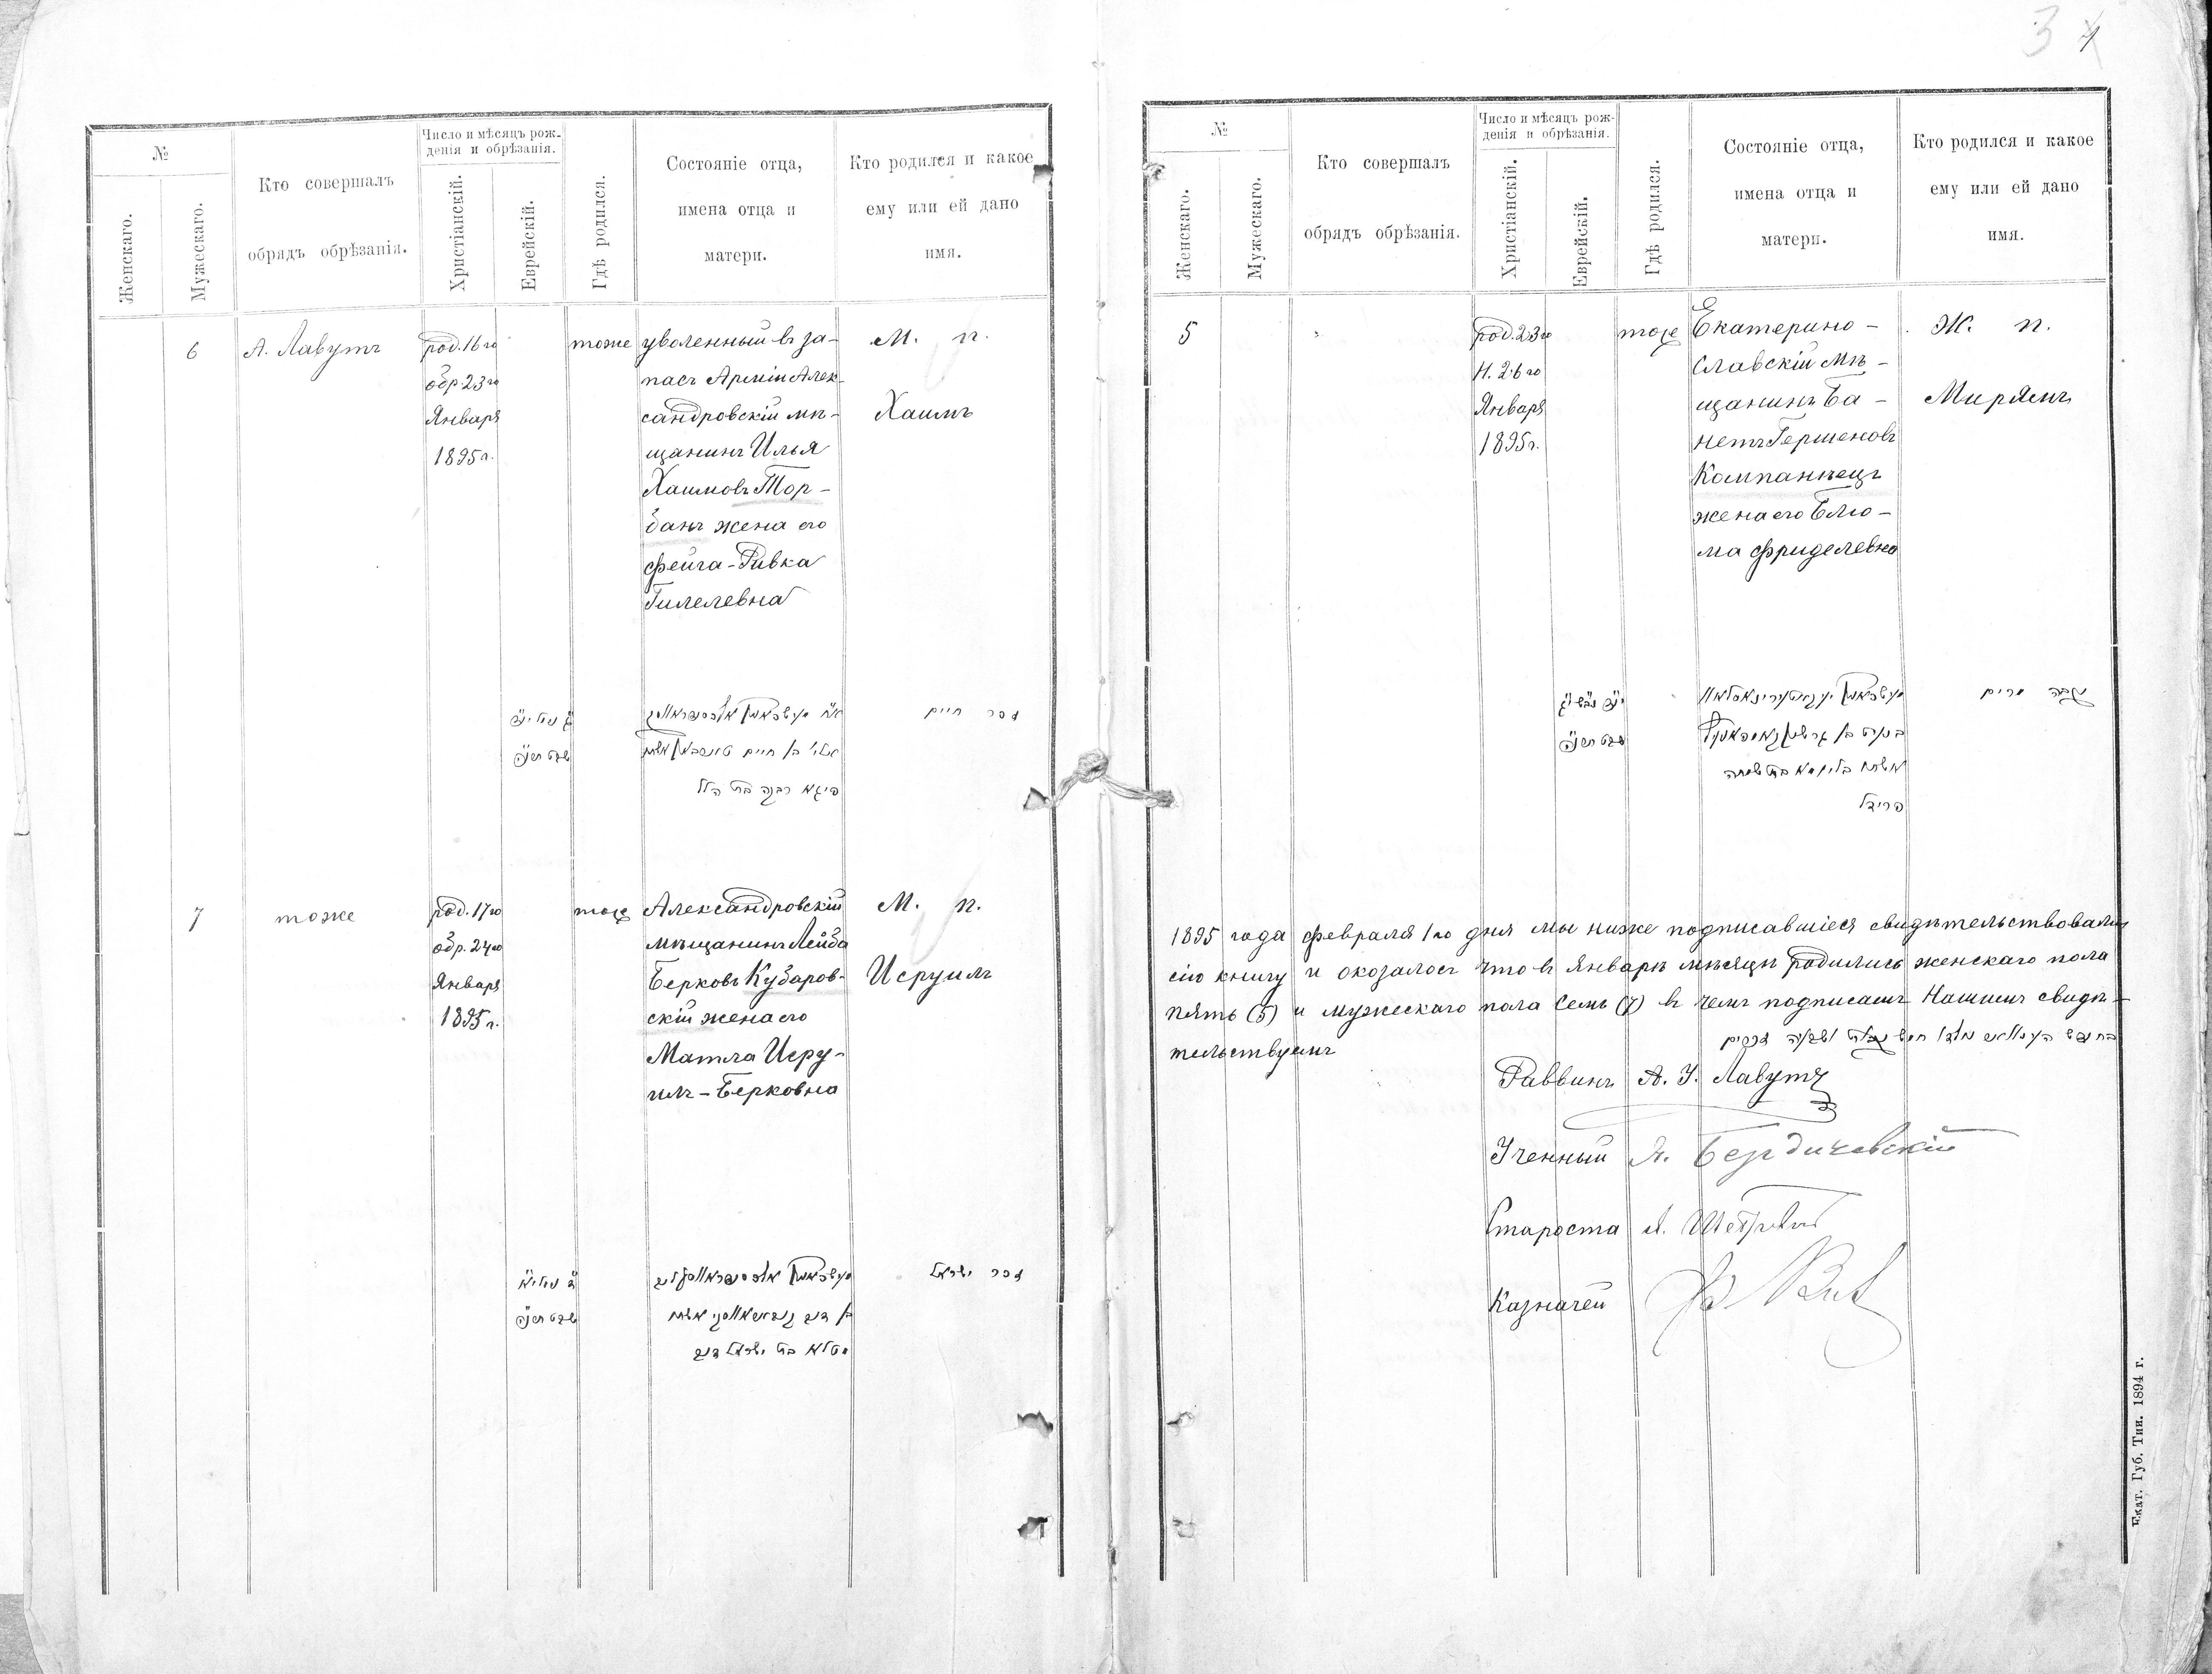 3 4
№
Женскаго.
Мужескаго.
Кто совершалъ
обрядъ обрѣзанія.
Число и мѣсяцъ рож-
денія и обрѣзанія.
Христіанскій.
Еврейскій.
Гдѣ родился.
Состояніе отца,
имена отца и
матери.
Кто родился и какое
ему или ей дано
имя.
6
А. Лавутъ
род. 16го
обр. 23го
Января
1895 г.
тоже
уволенный въ за-
пасъ Арміи Алек-
сандровскій мѣ-
щанинъ Илья
Хаимовъ Тор-
банъ жена его
Фейга-Ривка
Гилелевна
М. п.
Хаимъ
שבט
בן חיים
פיגא רבקה בת הלל
זכר חיים
7
тоже
род. 17го
обр. 24го
Января
1895 г.
тоже
Александровскій
мѣщанинъ Лейба
Берковъ Кубаров-
скій жена его
Матла Исру-
илъ-Берковна
М. п.
Исруилъ
שבט
מטלא בת ישראל
זכר ישראל
№
Женскаго.
Мужескаго.
Кто совершалъ
обрядъ обрѣзанія.
Число и мѣсяцъ рож-
денія и обрѣзанія.
Христіанскій.
Еврейскій.
Гдѣ родился.
Состояніе отца,
имена отца и
матери.
Кто родился и какое
ему или ей дано
имя.
5
род. 23го
Н. 26го
Января
1895 г.
тоже
Екатерино-
славскій мѣ-
щанинъ Ба-
нетъ Гершеновъ
Компанѣецъ
жена его Блю-
ма Фриделевна
Ж. п.
Мирямъ
שבט
בת שמחה
פרידל
נקבה מרים
1895 года февраля 1го дня мы ниже подписавшіеся свидѣтельствовали
сію книгу и оказалось что въ Январѣ мѣсяцѣ родились женскаго пола
пять (5) и мужескаго пола семь (7) въ чемъ подписомъ Нашимъ свидѣ-
тельствуемъ
זכרים
Раввинъ А. У. Лавутъ
Ученый Я. Бердичевскій
Староста
Казначей
Екат. Губ. Тип. 1894 г.